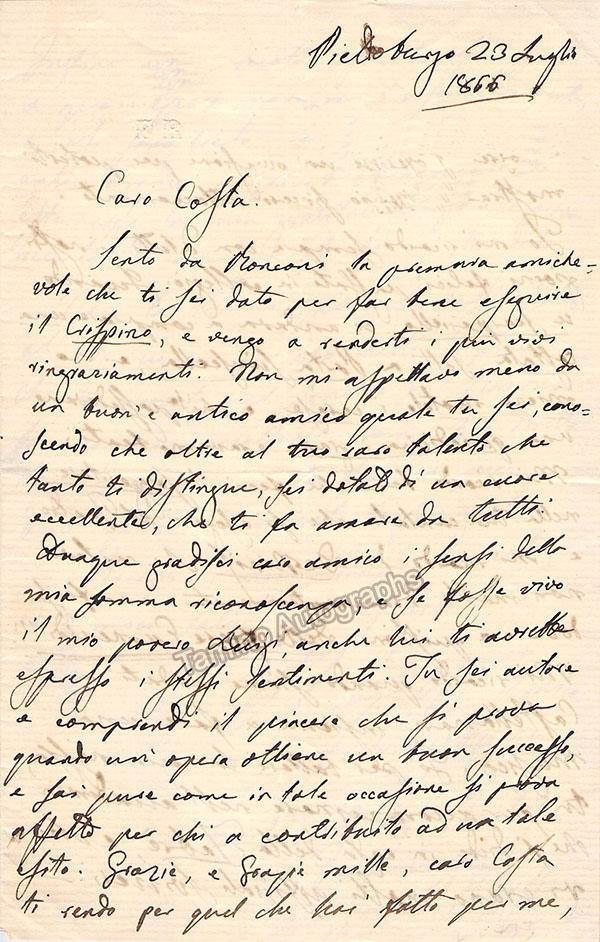 Pietroburgo 23 Luglio
1866
F R
Caro Costa.
Sento da Ronconi la premura amiche=
vole che ti sei dato per far bene eseguire
il Crispino, e vengo a renderti i più vivi
ringraziamenti. Non mi aspettavo meno da
un buon e antico amico quale tu sei, cono=
scendo che oltre al tuo raro talento che
tanto ti distingue, sei dotato di un cuore
eccellente, che ti fa amare da tutti.
Dunque gradisci caro amico i sensi della
mia somma riconoscenza, e se fosse vivo
il mio povero Luigi, anche lui ti avrebbe
espresso i stessi sentimenti. Tu sei autore
e comprendi il piacere che si prova
quando un'opera ottiene un buon successo,
e sai pure come in tale occasione si prova
affetto per chi a contribuito ad un tale
esito. Grazie, e grazie mille, caro Costa
ti rendo per quel che hai fatto per me,
Tamino Autographs